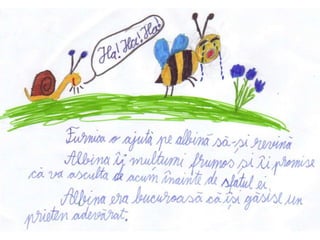 Ha! Ha! Ha!
Furnica o ajută pe albină să-și revină
Albina îi mulțumi frumos și îi promise
că va asculta de acum înainte de sfatul ei.
Albina era bucuroasă că își găsise un
prieten adevărat.